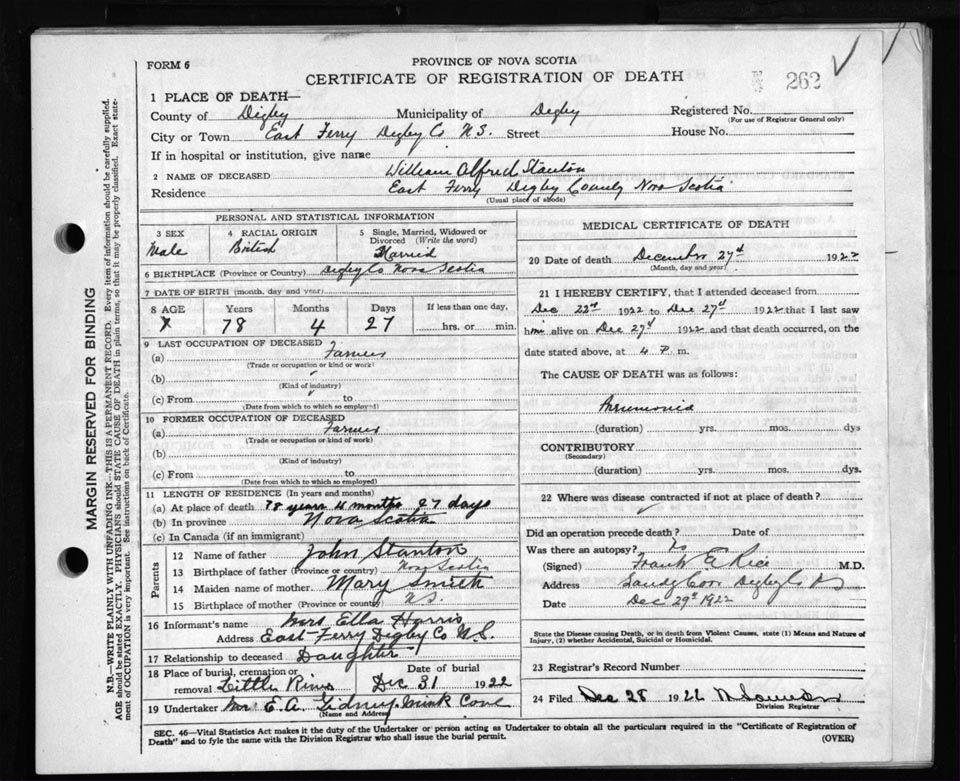 FORM 6
PROVINCE OF NOVA SCOTIA
CERTIFICATE OF REGISTRATION OF DEATH
262
1 PLACE OF DEATH—
County of Digby Municipality of Digby Registered No.
(For use of Registrar General only)
City or Town East Ferry Digby Co N.S. Street House No.
If in hospital or institution, give name
2 NAME OF DECEASED William Alfred Stanton
Residence East Ferry Digby County Nova Scotia
(Usual place of abode)
PERSONAL AND STATISTICAL INFORMATION
3 SEX 4 RACIAL ORIGIN 5 Single, Married, Widowed or Divorced (Write the word)
Male British Married
6 BIRTHPLACE (Province or Country) Digby Co Nova Scotia
7 DATE OF BIRTH (month, day and year)
8 AGE Years Months Days If less than one day,
78 4 27 hrs. or min.
9 LAST OCCUPATION OF DECEASED
(a) Farmer
(Trade or occupation or kind or work)
(b)
(Kind of industry)
(c) From to
(Date from which to which so employed)
10 FORMER OCCUPATION OF DECEASED
(a) Farmer
(Trade or occupation or kind of work)
(b)
(Kind of industry)
(c) From to
(Date from which to which employed)
11 LENGTH OF RESIDENCE (In years and months)
(a) At place of death 78 years 4 months 27 days
(b) In province Nova Scotia
(c) In Canada (if an immigrant)
Parents
12 Name of father John Stanton
13 Birthplace of father (Province or country) Nova Scotia
14 Maiden name of mother Mary Smith
15 Birthplace of mother (Province or county) N.S.
16 Informant's name Mrs Ella Harris
Address East Ferry Digby Co N.S.
17 Relationship to deceased Daughter
18 Place of burial, cremation or removal Little River Date of burial Dec 31 1922
19 Undertaker Mr E.A. Gidney Mink Cove
(Name and Address)
MEDICAL CERTIFICATE OF DEATH
20 Date of death December 27th 1922
(Month, day and year)
21 I HEREBY CERTIFY, that I attended deceased from
Dec 22nd 1922 to Dec 27th 1922 that I last saw
him alive on Dec 27th 1922 and that death occurred, on the
date stated above, at 4 P. m.
The CAUSE OF DEATH was as follows:
Pneumonia
(duration) yrs. mos. dys
CONTRIBUTORY
(Secondary)
(duration) yrs. mos. dys.
22 Where was disease contracted if not at place of death?
Did an operation precede death? Date of
Was there an autopsy? No
(Signed) Frank E Rice M.D.
Address Sandy Cove Digby Co NS
Date Dec 29th 1922
State the Disease causing Death, or in death from Violent Causes, state (1) Means and Nature of
Injury, (2) whether Accidental, Suicidal or Homicidal.
23 Registrar's Record Number
24 Filed Dec 28 1922
Division Registrar
SEC. 46—Vital Statistics Act makes it the duty of the Undertaker or person acting as Undertaker to obtain all the particulars required in the "Certificate of Registration of
Death" and to fyle the same with the Division Registrar who shall issue the burial permit.
(OVER)
MARGIN RESERVED FOR BINDING
N.B.—WRITE PLAINLY WITH UNFADING INK—THIS IS A PERMANENT RECORD. Every item of information should be carefully supplied.
AGE should be stated EXACTLY. PHYSICIANS should STATE CAUSE OF DEATH in plain terms, so that it may be properly classified. Exact statement
of OCCUPATION is very important. See instructions on back of Certificate.